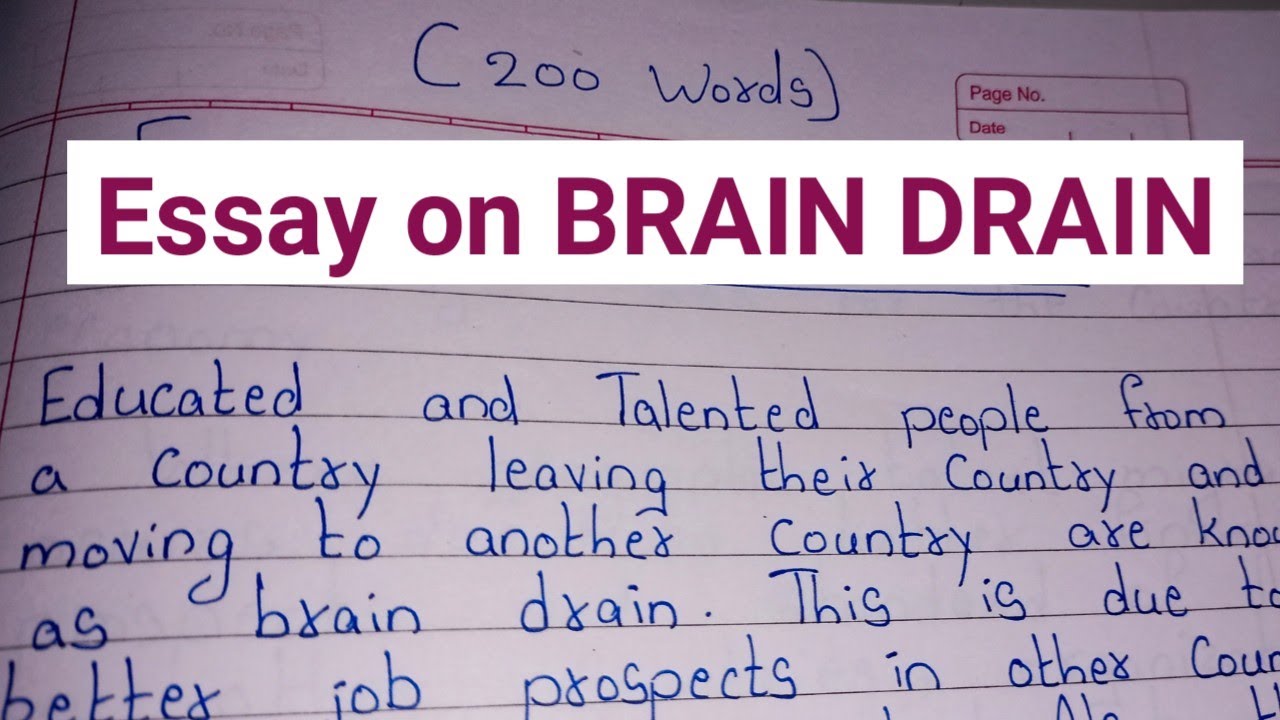 (200 Words)
Page No.
Date
Essay on BRAIN DRAIN
Educated and Talented people from
a Country leaving their Country and
moving to another Country are
as brain drain. This is due to
better job prospects in other